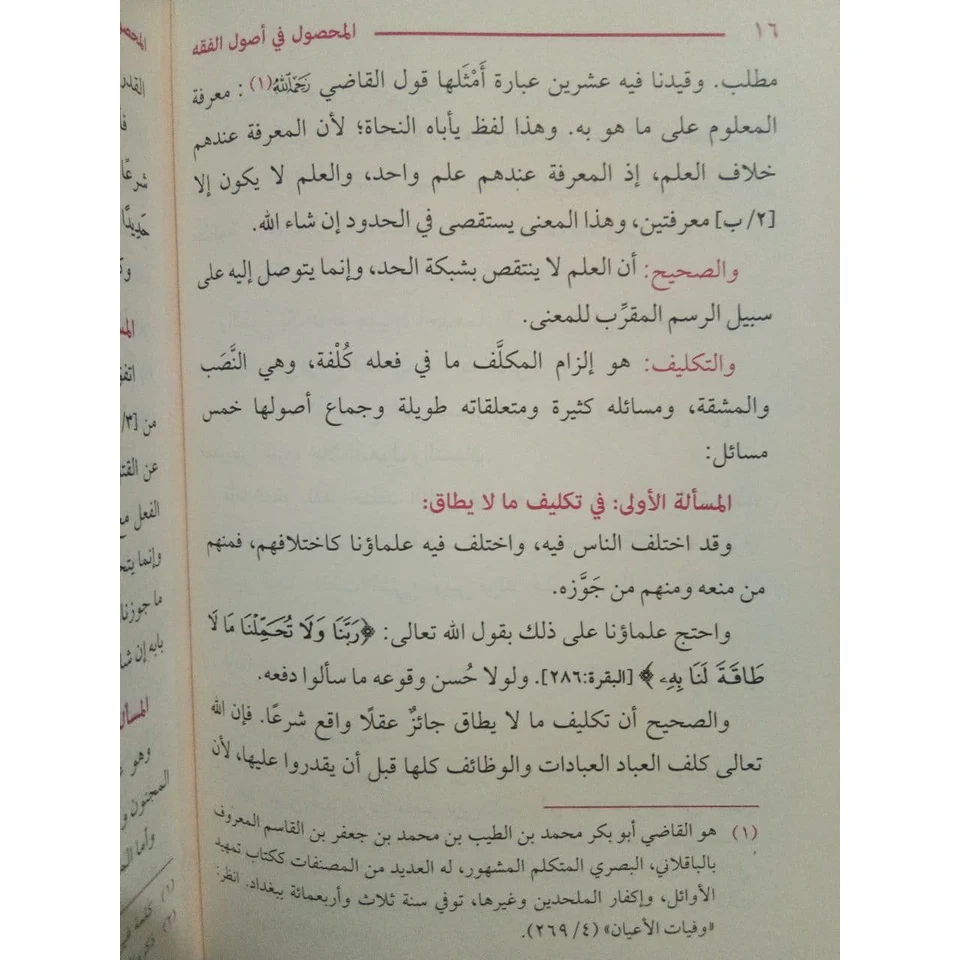 ١٦ المحصول في أصول الفقه
مطلب. وقيدنا فيه عشرين عبارة أَمْثَلها قول القاضي رَحِمَهُ اللهُ(١): معرفة
المعلوم على ما هو به. وهذا لفظ يأباه النحاة؛ لأن المعرفة عندهم
خلاف العلم، إذ المعرفة عندهم علم واحد، والعلم لا يكون إلا
[٢/ ب] معرفتين، وهذا المعنى يستقصى في الحدود إن شاء الله.
والصحيح: أن العلم لا ينتقص بشبكة الحد، وإنما يتوصل إليه على
سبيل الرسم المقرِّب للمعنى.
والتكليف: هو إلزام المكلَّف ما في فعله كُلْفة، وهي النَّصَب
والمشقة، ومسائله كثيرة ومتعلقاته طويلة وجماع أصولها خمس
مسائل:
المسألة الأولى: في تكليف ما لا يطاق:
وقد اختلف الناس فيه، واختلف فيه علماؤنا كاختلافهم، فمنهم
من منعه ومنهم من جَوَّزه.
واحتج علماؤنا على ذلك بقول الله تعالى: ﴿رَبَّنَا وَلَا تُحَمِّلْنَا مَا لَا
طَاقَةَ لَنَا بِهِۦ﴾ [البقرة:٢٨٦]. ولولا حُسن وقوعه ما سألوا دفعه.
والصحيح أن تكليف ما لا يطاق جائزٌ عقلًا واقع شرعًا. فإن الله
تعالى كلف العباد العبادات والوظائف كلها قبل أن يقدروا عليها، لأن
(١) هو القاضي أبو بكر محمد بن الطيب بن محمد بن جعفر بن القاسم المعروف
بالباقلاني، البصري المتكلم المشهور، له العديد من المصنفات ككتاب تمهيد
الأوائل، وإكفار الملحدين وغيرها، توفي سنة ثلاث وأربعمائة ببغداد. انظر:
«وفيات الأعيان» (٤/ ٢٦٩).